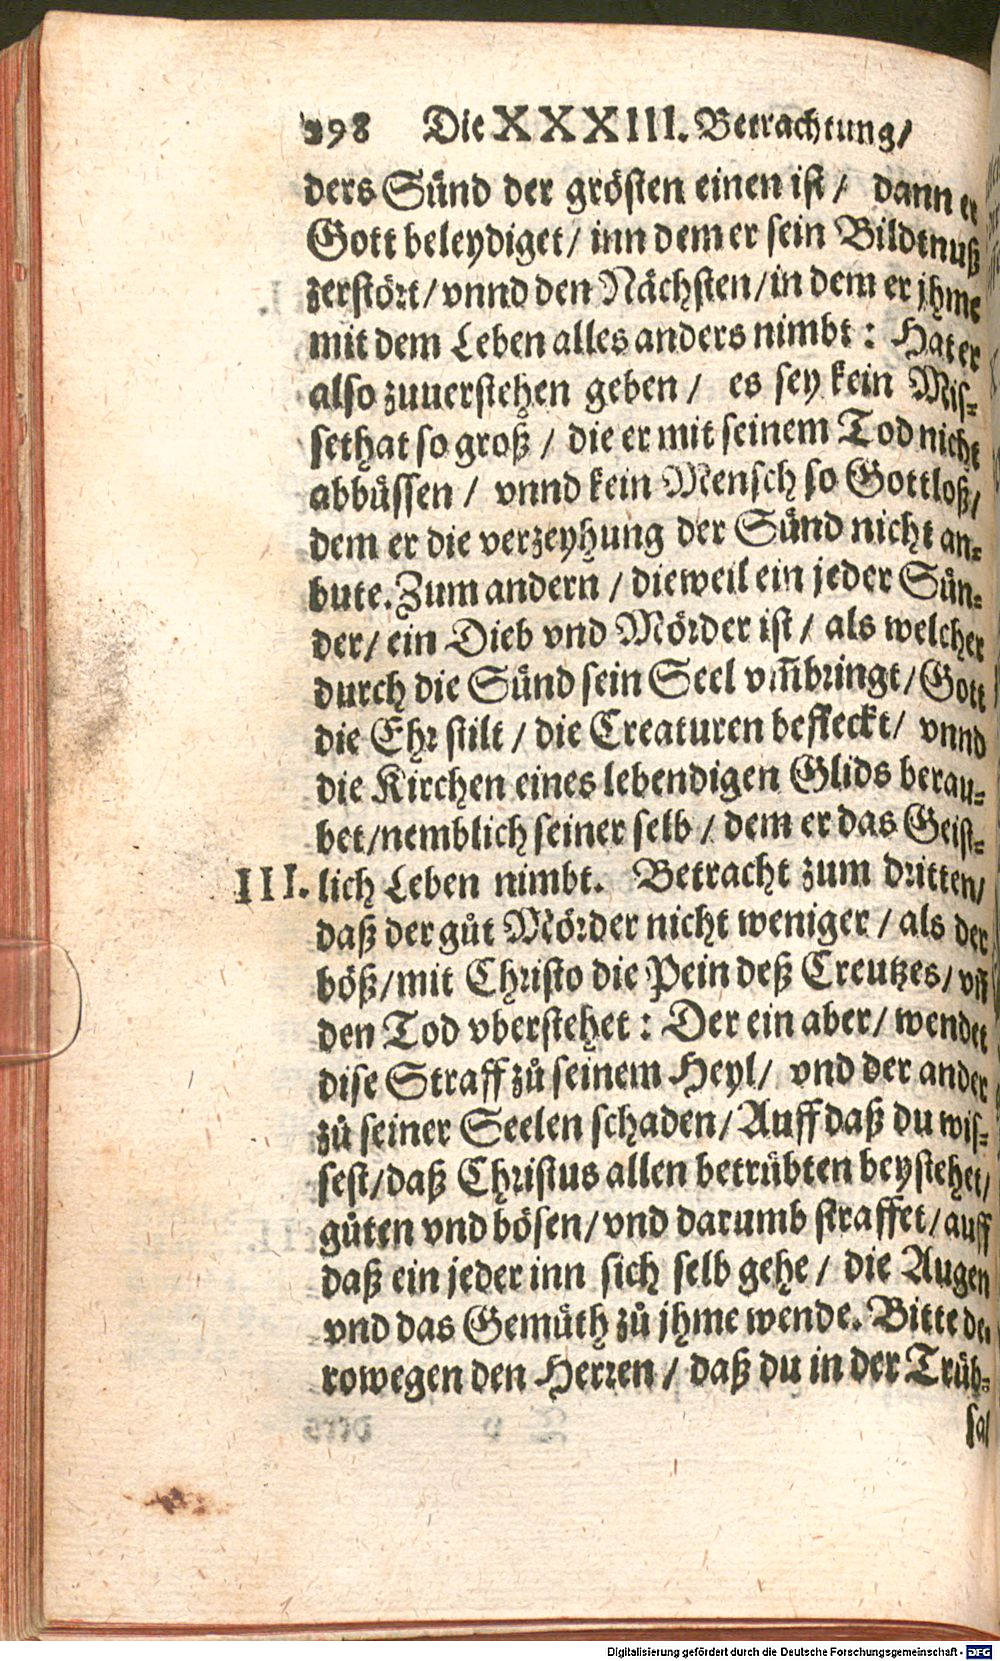 298 Die XXXIII. Betrachtung/
ders Sünd der grösten einen ist/ dann er
Gott beleydiget/ inn dem er sein Bildtnuß
zerstört/ vnnd den Nächsten/ in dem er jhme
mit dem Leben alles anders nimbt: Hat er
also zuuerstehen geben/ es sey kein Mis-
sethat so groß/ die er mit seinem Tod nicht
abbüssen/ vnnd kein Mensch so Gottloß/
dem er die verzeyhung der Sünd nicht an-
bute. Zum andern/ dieweil ein jeder Sün-
der/ ein Dieb vnd Mörder ist/ als welcher
durch die Sünd sein Seel vm̃bringt/ Gott
die Ehr stilt/ die Creaturen befleckt/ vnnd
die Kirchen eines lebendigen Glids berau-
bet/ nemblich seiner selb/ dem er das Geist-
III. lich Leben nimbt. Betracht zum dritten/
daß der gůt Mörder nicht weniger/ als der
böß/ mit Christo die Pein deß Creutzes/ vñ
den Tod vberstehet: Der ein aber/ wendet
dise Straff zů seinem Heyl/ vnd der ander
zů seiner Seelen schaden/ Auff daß du wis-
sest/ daß Christus allen betrübten beystehet/
gůten vnd bösen/ vnd darumb straffet/ auff
daß ein jeder inn sich selb gehe/ die Augen
vnd das Gemüth zů jhme wende. Bitte de-
rowegen den Herren/ daß du in der Trüb-
sal
Digitalisierung gefördert durch die Deutsche Forschungsgemeinschaft - DFG